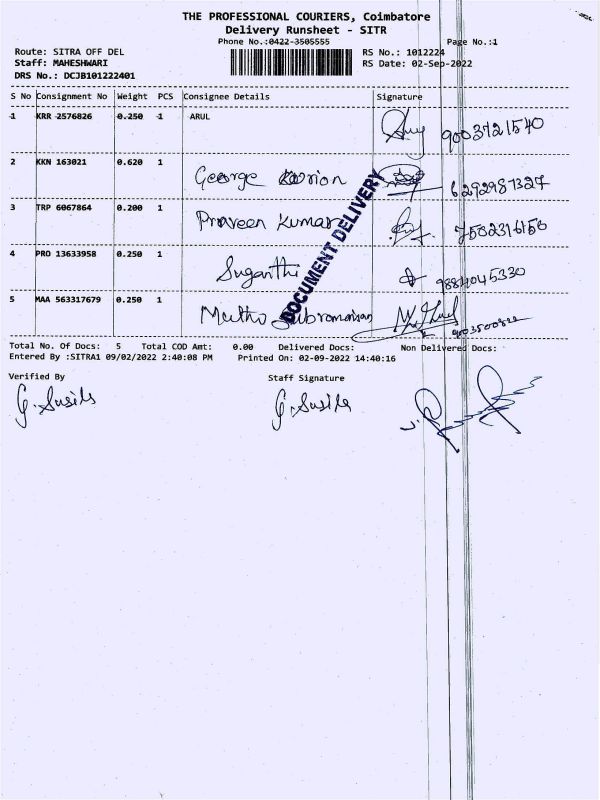 THE PROFESSIONAL COURIERS, Coimbatore
Delivery Runsheet - SITR
Phone No.:0422-3505555 Page No.:1
Route: SITRA OFF DEL RS No.: 1012224
Staff: MAHESHWARI RS Date: 02-Sep-2022
DRS No.: DCJB101222401
S No Consignment No Weight PCS Consignee Details Signature
1 KRR 2576826 0.250 1 ARUL 9003721540
2 KKN 163021 0.620 1 George 6292987327
3 TRP 6067864 0.200 1 Praveen Kumar 7502316156
4 PRO 13633958 0.250 1 Suganthi 9884045330
5 MAA 563317679 0.250 1 Muthu Subramanian
DOCUMENT DELIVERY
Total No. Of Docs: 5 Total COD Amt: 0.00 Delivered Docs: Non Delivered Docs:
Entered By :SITRA1 09/02/2022 2:40:08 PM Printed On: 02-09-2022 14:40:16
Verified By Staff Signature
G. Susila G. Susila